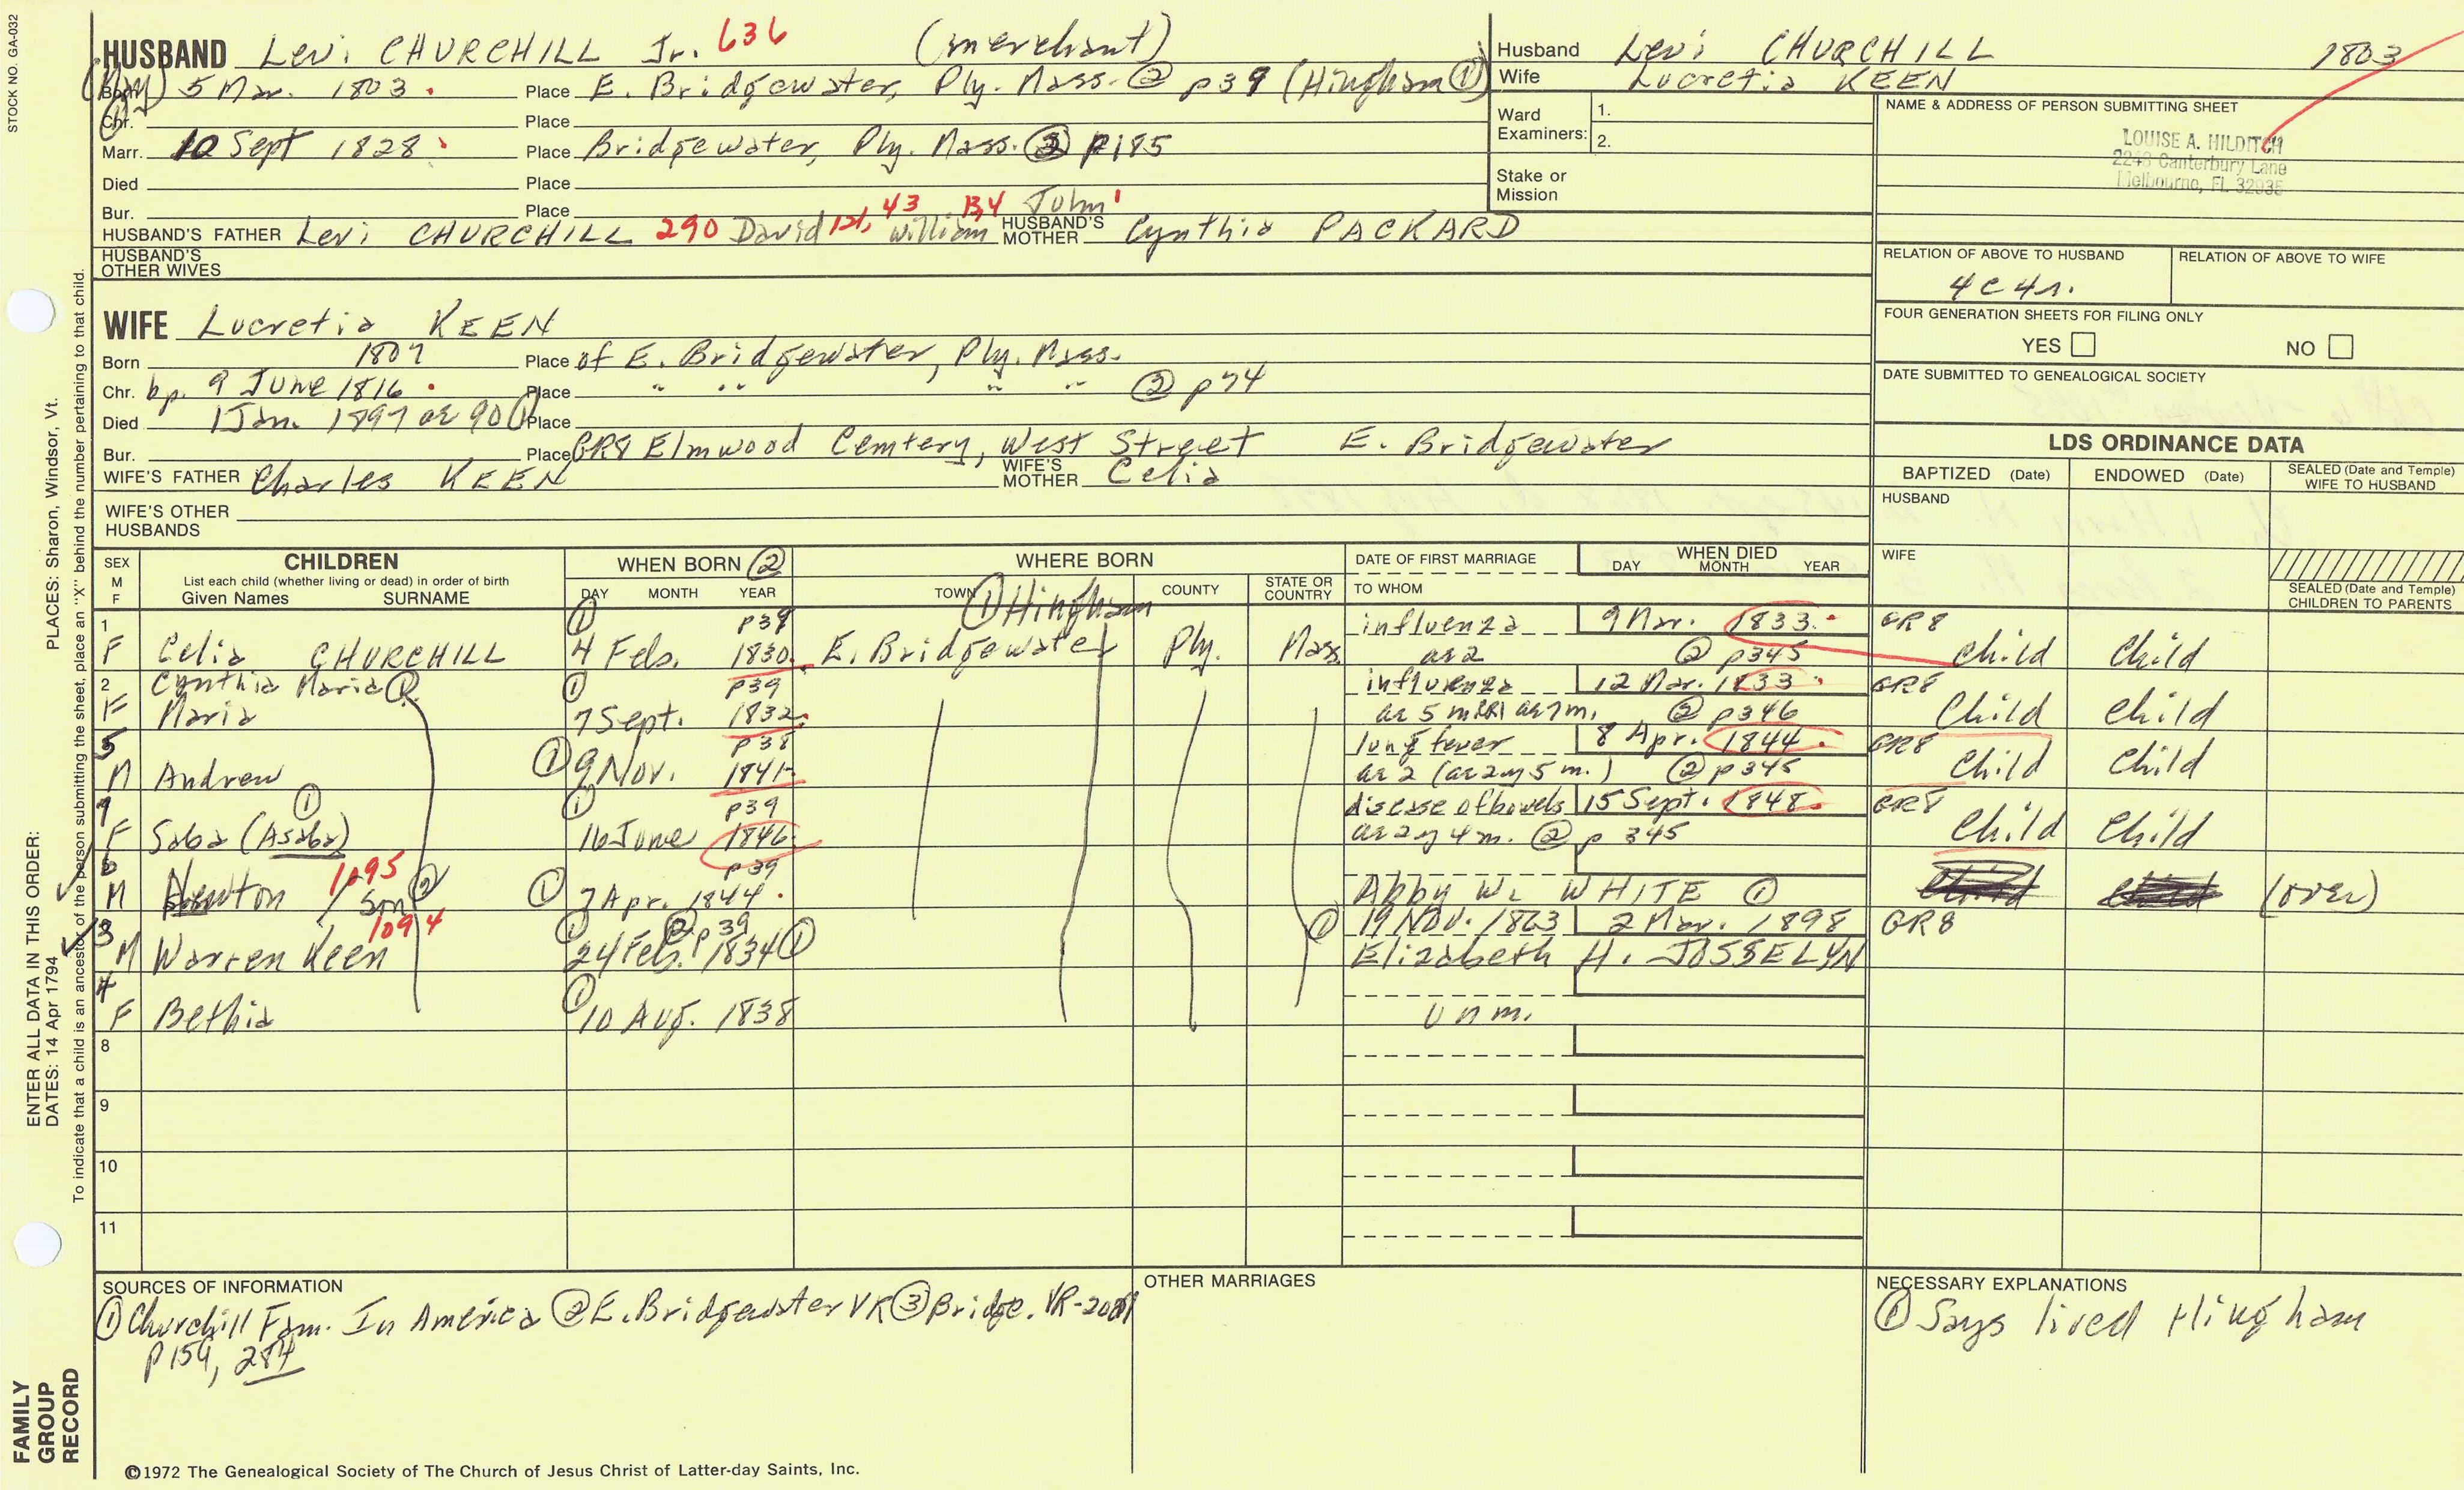 STOCK NO. GA-032
HUSBAND Levi CHURCHILL Jr. 636 (merchant)
(May) Born 5 Mar. 1803. Place E. Bridgewater, Ply. Mass. ② p39 (Hingham ①)
Chr. Place
Marr. 10 Sept 1828. Place Bridgewater, Ply. Mass. ③ p185
Died Place
Bur. Place
43 134 John 1
HUSBAND'S FATHER Levi CHURCHILL 290 David 121, William HUSBAND'S MOTHER Cynthia PACKARD
HUSBAND'S OTHER WIVES
Husband Levi CHURCHILL 1803
Wife Lucretia KEEN
Ward Examiners: 1.
2.
Stake or Mission
NAME & ADDRESS OF PERSON SUBMITTING SHEET
LOUISE A. HILDITCH
2248 Canterbury Lane
Melbourne, FL 32935
RELATION OF ABOVE TO HUSBAND RELATION OF ABOVE TO WIFE
4c4r.
FOUR GENERATION SHEETS FOR FILING ONLY
YES NO
DATE SUBMITTED TO GENEALOGICAL SOCIETY
WIFE Lucretia KEEN
Born 1807 Place of E. Bridgewater, Ply. Mass.
Chr. bp. 9 June 1816. Place " " " " ② p74
Died 1 Jan. 1897 or 90 ① Place
Bur. Place GR8 Elmwood Cemtery, West Street E. Bridgewater
WIFE'S FATHER Charles KEEN WIFE'S MOTHER Celia
WIFE'S OTHER HUSBANDS
LDS ORDINANCE DATA
BAPTIZED (Date) ENDOWED (Date) SEALED (Date and Temple) WIFE TO HUSBAND
HUSBAND
WIFE
SEALED (Date and Temple) CHILDREN TO PARENTS
SEX M F
CHILDREN
List each child (whether living or dead) in order of birth
Given Names SURNAME
WHEN BORN ②
DAY MONTH YEAR
WHERE BORN
TOWN ① Hingham COUNTY STATE OR COUNTRY
DATE OF FIRST MARRIAGE
TO WHOM
WHEN DIED
DAY MONTH YEAR
1 ① p39 influenza 9 Mar. 1833. GR8
F Celia CHURCHILL 4 Feb. 1830. E. Bridgewater Ply. Mass. ae 2 ② p345 Child Child
2 Cynthia Maria ① ① p39 influenza 12 Mar. 1833. GR8
F Maria 7 Sept. 1832. ae 5 m ae 7m. ② p346 Child Child
5 p38 lung fever 8 Apr. 1844. GR8
M Andrew ① 9 Nov. 1841. ae 2 (ae 2y 5 m.) ② p345 Child Child
7 ① ① p39 disease of bowels 15 Sept. 1848. GR8
F Saba (Asaba) 16 June 1846. ae 2y 4 m. ② p 345 Child Child
6 1095 p39
M Newton / Son ② ① 7 Apr. 1844. Abby W. WHITE ① (over)
3 1094 ① ② p39 ① 19 Nov. 1863 2 Mar. 1898 GR8
M Warren Keen 24 Feb. 1834 ① Elizabeth H. JOSSELYN
4 ①
F Bethia 10 Aug. 1838 unm.
8
9
10
11
SOURCES OF INFORMATION
① Churchill Fam. In America ② E. Bridgewater VR ③ Bridge. VR-2
p159, 284
OTHER MARRIAGES
NECESSARY EXPLANATIONS
① Says lived Hingham
©1972 The Genealogical Society of The Church of Jesus Christ of Latter-day Saints, Inc.
FAMILY GROUP RECORD
ENTER ALL DATA IN THIS ORDER:
DATES: 14 Apr 1794 PLACES: Sharon, Windsor, Vt.
To indicate that a child is an ancestor of the person submitting the sheet, place an "X" behind the number pertaining to that child.